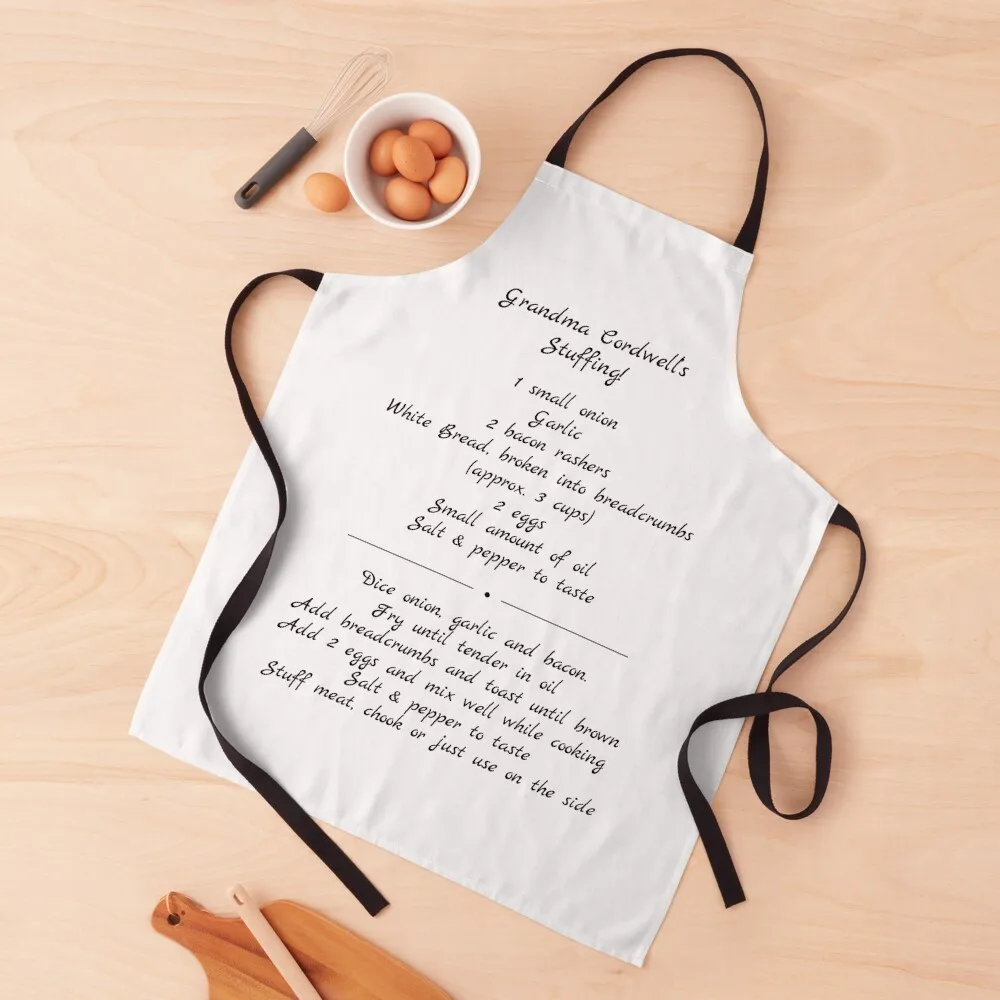 Grandma Cordwell's
Stuffing!
1 small onion
Garlic
2 bacon rashers
White Bread, broken into breadcrumbs
(approx. 3 cups)
2 eggs
Small amount of oil
Salt & pepper to taste
Dice onion, garlic and bacon.
Fry until tender in oil
Add breadcrumbs and toast until brown
Add 2 eggs and mix well while cooking
Salt & pepper to taste
Stuff meat, chook or just use on the side